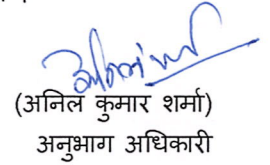 (अनिल कुमार शर्मा)
अनुभाग अधिकारी